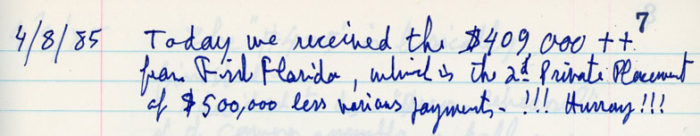 7
4/8/85 Today we received the $409,000 ++
from First Florida, which is the 2d Private Placement
of $500,000 less various payments - !!! Hurray!!!